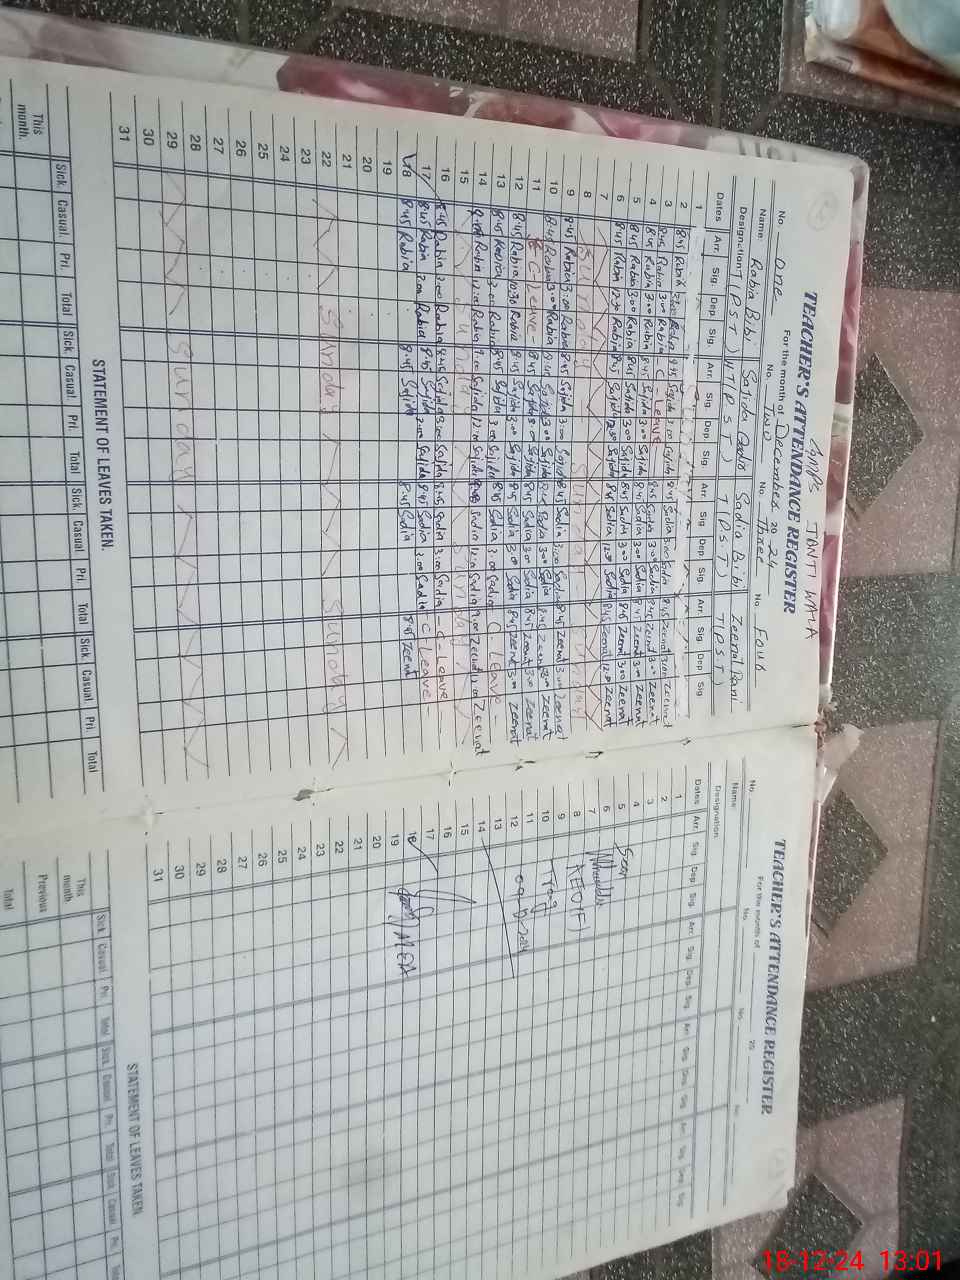 GMPS TANTI WALA
TEACHER'S ATTENDANCE REGISTER
For the month of December 20 24
No. One No. Two No. Three No. Four
Name: Rabia Bibi Sajida Sadia Bibi Zeenat Rani
Designation (PST) (PST) (PST) (PST)
Dates Arr. Sig. Dep. Sig. Arr. Sig. Dep. Sig. Arr. Sig. Dep. Sig. Arr. Sig. Dep. Sig.
1
2 8:45 Rabia 3:00 Rabia 8:45 Sajida 3:00 Sajida 8:45 Sadia 3:00 Sadia 8:45 Zeenat 3:00 Zeenat
3 8:45 Rabia 3:00 Rabia C Leave 8:45 Sadia 3:00 Sadia 8:45 Zeenat 3:00 Zeenat
4 8:45 Rabia 3:00 Rabia 8:45 Sajida 3:00 Sajida 8:45 Sadia 3:00 Sadia 8:45 Zeenat 3:00 Zeenat
5 8:45 Rabia 3:00 Rabia 8:45 Sajida 3:00 Sajida 8:45 Sadia 3:00 Sadia 8:45 Zeenat 3:00 Zeenat
6 8:45 Rabia 12:30 Rabia 8:45 Sajida 12:30 Sajida 8:45 Sadia Sadia 8:45 Zeenat Zeenat
7
8 Sunday Sunday
9 8:45 Rabia 3:00 Rabia 8:45 Sajida 3:00 Sajida 8:45 Sadia 3:00 Sadia 8:45 Zeenat 3:00 Zeenat
10 8:45 Rabia 3:00 Rabia 8:45 Sajida 3:00 Sajida 8:45 Sadia 3:00 Sadia 8:45 Zeenat 3:00 Zeenat
11 C-Leave - 8:45 Sajida 3:00 Sajida 8:45 Sadia 3:00 Sadia 8:45 Zeenat 3:00 Zeenat
12 8:45 Rabia Rabia 8:45 Sajida 3:00 Sajida 8:45 Sadia 3:00 Sadia 8:45 Zeenat 3:00 Zeenat
13 8:45 Rabia 3:00 Rabia 8:45 Sajida 3:00 Sajida 8:45 Sadia 3:00 Sadia C - Leave -
14 Rabia 12:00 Rabia 9:00 Sajida 12:00 Sajida Sadia 12:00 Sadia 9:00 Zeenat 12:00 Zeenat
15 Sunday Sunday
16 8:45 Rabia 3:00 Rabia 8:45 Sajida 3:00 Sajida 8:45 Sadia 3:00 Sadia - C - Leave -
17 8:45 Rabia 2:00 Rabia 8:45 Sajida 2:00 Sajida 8:45 Sadia 2:00 Sadia - C - Leave -
18 8:45 Rabia 8:45 Sajida 8:45 Sadia 8:45 Zeenat
19
20
21
22 Sunday Sunday
23
24
25
26
27
28
29 Sunday
30
31
STATEMENT OF LEAVES TAKEN.
Sick. Casual. Pri. Total Sick. Casual. Pri. Total Sick. Casual. Pri Total Sick. Casual. Pri. Total
This month.
TEACHER'S ATTENDANCE REGISTER
For the month of 20
No. No. No.
Name:
Designation
Dates Arr. Sig. Dep. Sig. Arr. Sig. Dep. Sig. Arr. Sig. Dep. Sig. Arr. Sig. Dep. Sig
1
2
3
4
5 Seen
6
7
8 AEO(F)
9
10
11
12
13
14
15
16
17
18 MEA
19
20
21
22
23
24
25
26
27
28
29
30
31
STATEMENT OF LEAVES TAKEN.
Sick. Casual. Pri. Total Sick. Casual. Pri. Total Sick. Casual. Pri. Total
This month
Previous
Total
18-12-24 13:01